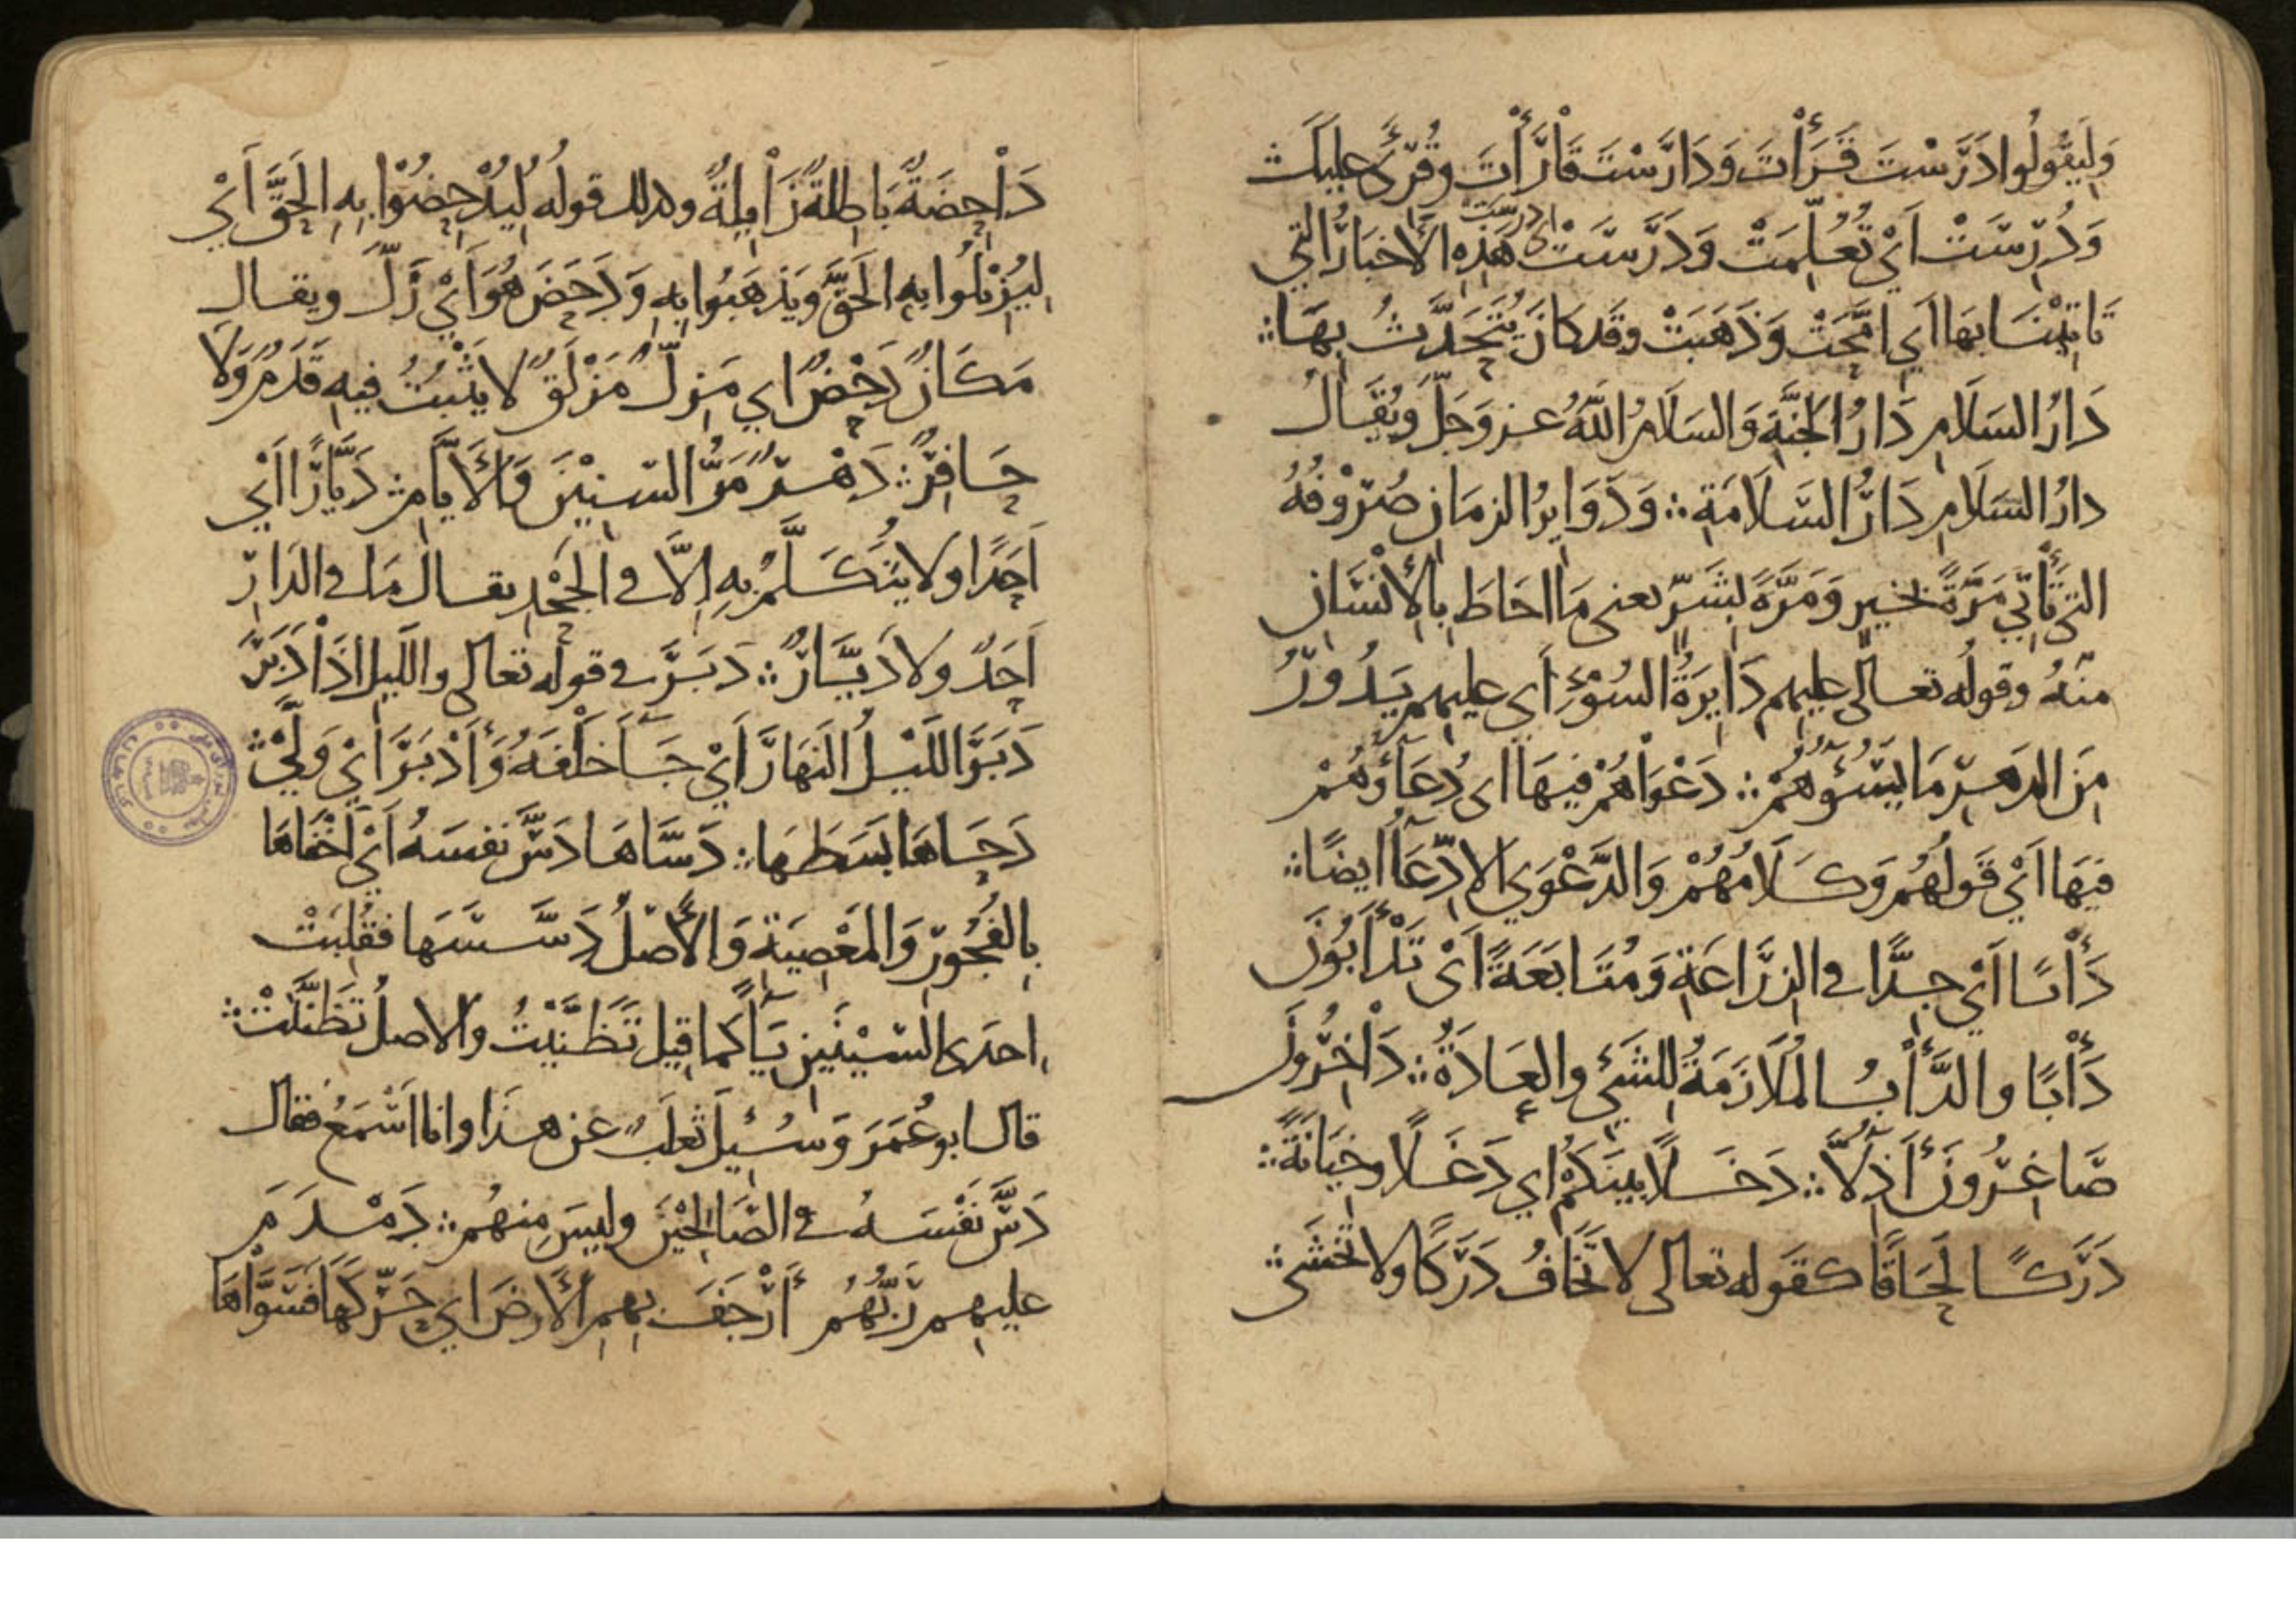 وَلِيَقُولُوا دَرَسْتَ قَرَأْتَ وَدَارَسْتَ قَارَأْتَ وقُرِئَ عليك
وَدُرِسَتْ اَيْ تُعُلِّمَتْ وَدَرَسَتْ اي درست هَذِهِ الأَخبَارُ التي
تَاتِيْنَا بهَا اَي امَّحَتْ وَذَهَبَتْ وقَد كَانَ يُتَحَدَّثُ بِهَا ؞
دَارُ السَلَامِ دَارُ الجَنَّةِ وَالسَلَامُ اللَّهُ عز وَجَلَّ ويُقَالُ
دارُ السَلَامِ دَارُ السَلَامَةِ ؞ وَدَوَايِرُ الزمَانِ صُرُوْفُهُ
التي تَأْتِي مَرَّةً بخيرٍ وَمَرَّةً بِشَرٍّ يعنى مَا احَاطَ بِالْإِنْسَانِ
منْهُ وقولُه تعالى عليهم دَايِرَةُ السُوْءِ أي عليهم يَدُورُ
مِنَ الدَهرِ مَا يَسُؤهُمْ ؞ دَعْوَاهُمْ فِيهَا اى دُعَآؤهُمْ
فِيهَا اَيْ قَولُهُم وَكَلَامُهُمْ وَالدَّعْوَي الاِدِّعَآُ ايضًا ؞
دَأْبًا اَيْ جِدًّا في الزِرَاعَةِ وَمُتَابَعَةً اَىْ تَدْأَبُوْنَ
دَأْبًا والدَّأْبُ المُلَازَمَةُ لِلشَيْءِ والعَادَةُ ؞ دَاخِرُونَ
صَاغِرُونَ أَذِلَّآ ؞ دَخَلًا بَينَكُمْ اي دَغَلًا وخِيَانَةً ؞
دَرَكًا لَحَاقًا كقَولِه تعالى لا تَخَافُ دَرَكًا ولا تَخْشَى ؞
دَاحِضَةٌ بَاطِلَةٌ زَايِلَةٌ وكذلك قولُه لِيُدْحِضُوْا بِهِ الحَقَّ اَيْ
لِيُزِيْلُوا بِهِ الحَقَّ وَيَذهَبُوا بِهِ وَدَحَضَ هُوَ اَيْ زَلَّ ويقال
مَكَانٌ دَحْضٌ اي مَزِلٌّ مَزْلَقٌ لا يَثْبُتُ فيهِ قَدَمٌ وَلَا
حَافِرٌ ؞ دَهْرٌ مَرُّ السّنِيْنَ وَالأَيَّامِ ؞ دَيَّارًا اَيْ
اَحَدًا ولا يُتَكَلَّمُ بِهِ إِلَّا في الجَحْدِ يقال مَا في الدَارِ
اَحَدٌ ولا دَيَّارٌ ؞ دَبَرَ في قوله تعالى والليلِ اذَا دَبَرَ
دَبَرَ اللَيْلُ النَهَارَ اَيْ جَآءَ خَلْفَهُ وَأَدْبَرَ اَيْ وَلَّيْ ؞
دَحَاهَا بَسَطَهَا ؞ دَسَّاهَا دَسَّ نفسَهُ اَيْ اَخْفَاهَا
بِالفُجُورِ وَالمَعْصِيَةِ وَالأَصْلُ دَسَّسَهَا فقُلِبَتْ
اِحدَى السّيْنَيْنِ يَآءً كَمَا قِيلَ تَظَنَّيْتُ والاصلُ تَظَنَّنْتُ ؞
قال ابو عُمَرَ وَسُئِلَ ثعلَبٌ عن هذَا وانا اَسْمَعُ فقال
دَسَّ نَفْسَهُ في الصَالِحِيْنَ وليسَ مِنهُم ؞ دَمْدَمَ
عليهِم رَبُّهُم أَرْجَفَ بِهِمِ الأَرضَ اي حَرَّكَهَا فَسَوَّاهَا